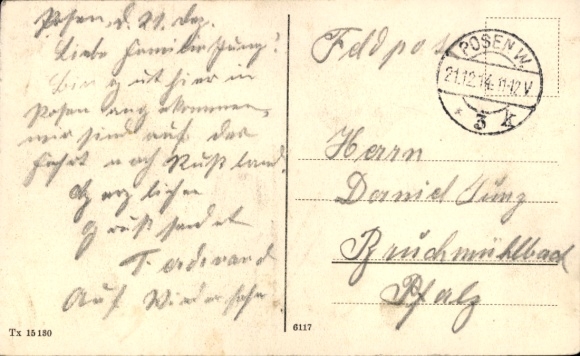 Posen, d. 21. Dez.
Liebe Familie Jung!
Bin gut hier in
Posen angekommen,
wir sind auf der
Fahrt nach Rußland.
Herzlichen
Gruß sendet
Ferdinand
Auf Wiedersehn
Tx 15130
6117
Feldpost
POSEN W.
21.12.14.11-12V
* 3 k
Herrn
Daniel Jung
Bruchmühlbach
Pfalz